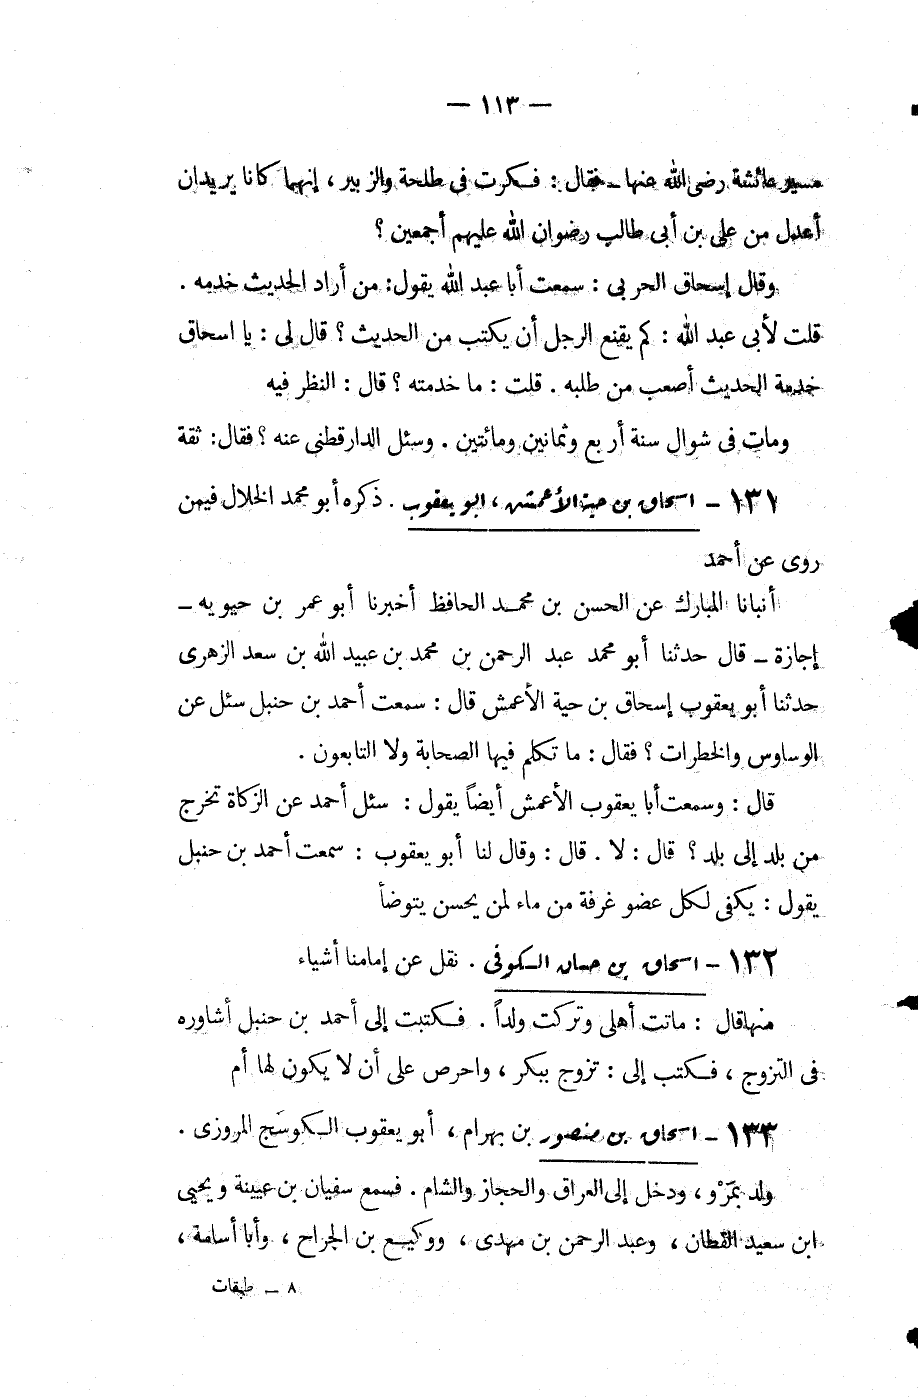 — ١١٣ —
مسير عائشة رضى الله عنها ـ فقال : فكرت فى طلحة والزبير ، إنهما كانا يريدان
أعدل من على بن أبى طالب رضوان الله عليهم أجمعين ؟
وقال إسحاق الحربى : سمعت أبا عبد الله يقول : من أراد الحديث خدمه .
قلت لأبى عبد الله : كم يقنع الرجل أن يكتب من الحديث ؟ قال لى : يا اسحاق
خدمة الحديث أصعب من طلبه . قلت : ما خدمته ؟ قال : النظر فيه
ومات فى شوال سنة أربع وثمانين ومائتين . وسئل الدارقطنى عنه ؟ فقال : ثقة
١٣١ ـ اسحاق بن حية الأعمش ، ابو يعقوب . ذكره أبو محمد الخلال فيمن
روى عن أحمد
أنبانا المبارك عن الحسن بن محمد الحافظ أخبرنا أبو عمر بن حيويه ـ
إجازة ـ قال حدثنا أبو محمد عبد الرحمن بن محمد بن عبيد الله بن سعد الزهرى
حدثنا أبو يعقوب إسحاق بن حية الأعمش قال : سمعت أحمد بن حنبل سئل عن
الوساوس والخطرات ؟ فقال : ما تكلم فيها الصحابة ولا التابعون .
قال : وسمعت أبا يعقوب الأعمش أيضاً يقول : سئل أحمد عن الزكاة تخرج
من بلد إلى بلد ؟ قال : لا . قال : وقال لنا أبو يعقوب : سمعت أحمد بن حنبل
يقول : يكفى لكل عضو غرفة من ماء لمن يحسن يتوضأ
١٣٢ ـ اسحاق بن حسان الكوفى . نقل عن إمامنا أشياء
منها قال : ماتت أهلى وتركت ولداً . فكتبت إلى أحمد بن حنبل أشاوره
فى التزوج ، فكتب إلى : تزوج ببكر ، واحرص على أن لا يكون لها أم
١٣٣ ـ اسحاق بن منصور بن بهرام ، أبو يعقوب الكوسَج المروزى .
ولد بمَرْو ، ودخل إلى العراق والحجاز والشام . فسمع سفيان بن عيينة ويحيى
ابن سعيد القطان ، وعبد الرحمن بن مهدى ، ووكيع بن الجراح ، وأبا أسامة ،
٨ ـ طبقات